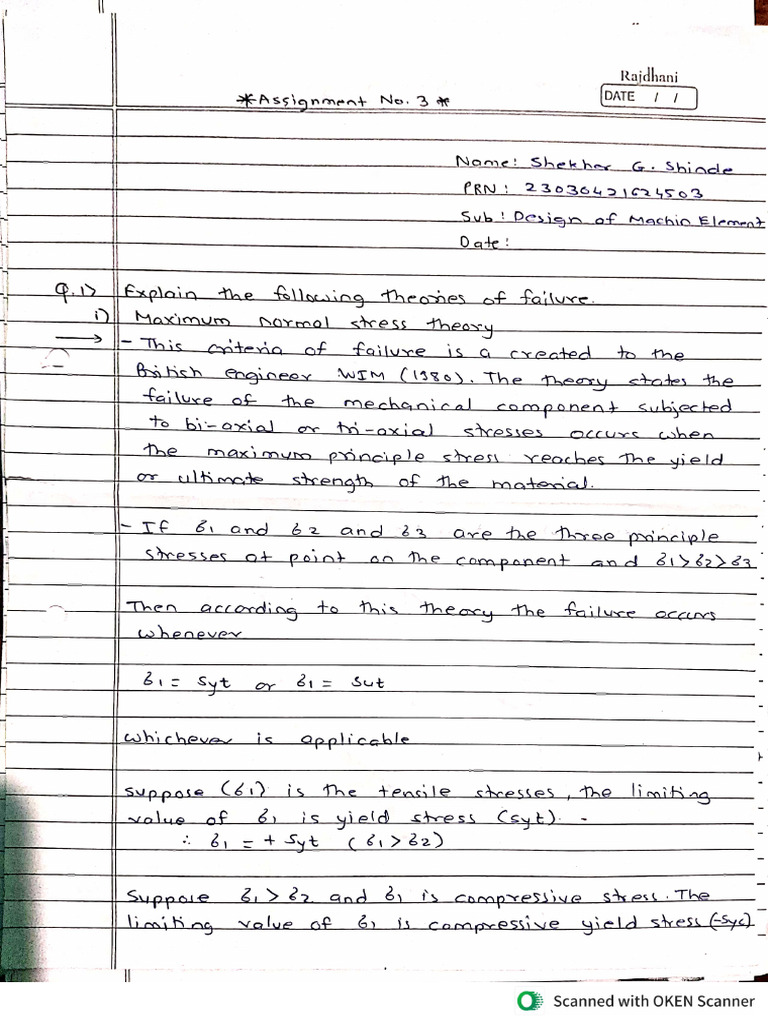 Rajdhani
DATE / /
*Assignment No. 3*
Name: Shekhar G. Shinde
PRN: 23030421624503
Sub: Design of Machin Element
Date:
Q.1> Explain the following theories of failure.
i) Maximum normal stress theory
→ - This criteria of failure is a created to the
British engineer WIM (1380). The theory states the
failure of the mechanical component subjected
to bi-axial or tri-axial stresses occurs when
the maximum principle stress reaches the yield
or ultimate strength of the material.
- If σ1 and σ2 and σ3 are the three principle
stresses at point on the component and σ1>σ2>σ3
Then according to this theory the failure occurs
whenever
σ1 = Syt or σ1 = Sut
whichever is applicable
suppose (σ1) is the tensile stresses, the limiting
value of σ1 is yield stress (Syt).
∴ σ1 = + Syt (σ1>σ2)
Suppose σ1>σ2 and σ1 is compressive stress. The
limiting value of σ1 is compressive yield stress (-Syc).
Scanned with OKEN Scanner